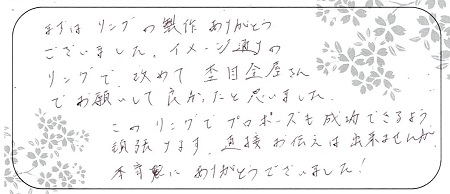 まずは リングの製作 ありがとう
ございました。イメージ通りの
リングで 改めて 杢目金屋さん
でお願いして良かったと思いました。
このリングでプロポーズも成功できるよう
頑張ります。直接お伝えは出来ませんが、
本当に ありがとうございました！